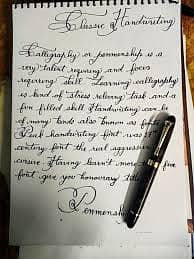 Classic Handwriting
Calligraphy or penmenship is a
very talent requring and focus
requring skill. Learning calligraphy
is kind of stress relieving task and a
fun filled skill. Handwriting can be
of many kinds also known as fonts.
handwriting font was
century font the real aggression
cursive. Having learn't more
font give you honourary title
Penmenship